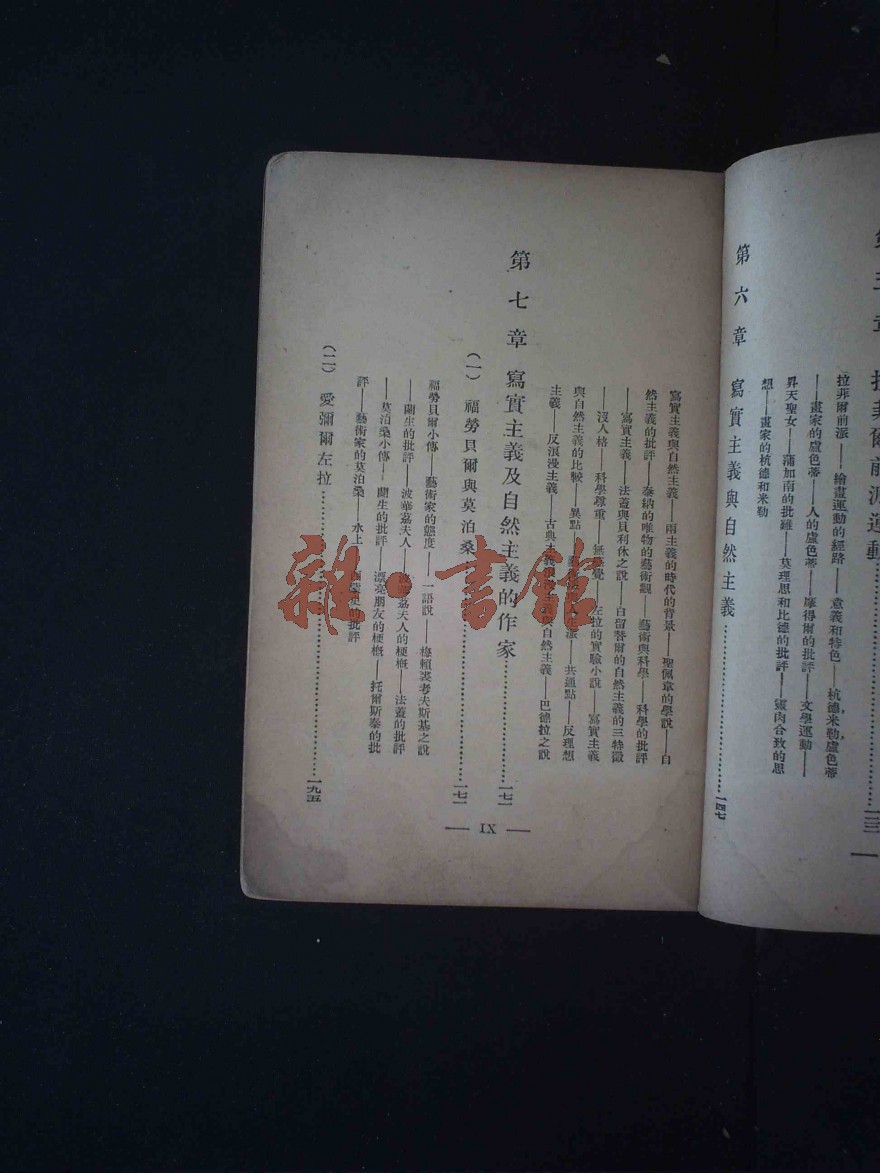 拉菲爾前派——繪畫運動的經路——意義和特色——杭德,米勒,盧色蒂
——畫家的盧色蒂——人的盧色蒂——摩得爾的批評——文學運動——
昇天聖女——蒲加南的批難——莫理思和比德的批評——靈肉合致的思
想——畫家的杭德和米勒
第六章 寫實主義與自然主義…………一四七
寫實主義與自然主義——兩主義的時代的背景——聖佩韋的學說——自
然主義的批評——泰納的唯物的藝術觀——藝術與科學——科學的批評
——寫實主義——法蓋與貝利休之說——白留替爾的自然主義的三特徵
——沒人格——科學尊重——無感覺——左拉的實驗小說——寫實主義
與自然主義的比較——異點——人生派——共通點——反理想
主義——反浪漫主義——古典主義與——巴德拉之說
第七章 寫實主義及自然主義的作家…………一七一
(一) 福勞貝爾與莫泊桑…………一七一
福勞貝爾小傳——藝術家的態度——一語說——梅賴裘考夫斯基之說
——蘭生的批評——波華荔夫人——波華荔夫人的梗概——法蓋的批評
——莫泊桑小傳——蘭生的批評——漂亮朋友的梗概——托爾斯泰的批
評——藝術家的莫泊桑——水上——的批評
(二) 愛彌爾左拉…………一九五
— IX —
雜·書館